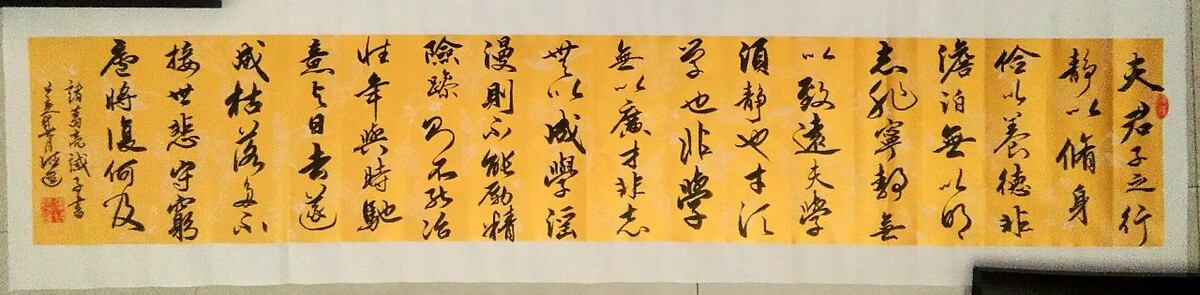 夫君子之行
静以脩身
俭以養德非
澹泊無以明
志非寧静無
以致遠夫學
須静也才須
学也非學
無以廣才非志
無以成學滛
漫則不能励精
險躁則不能冶
性年與時馳
意与日去遂
成枯落多不
接世悲守窮
廬將復何及
諸葛亮誡子書